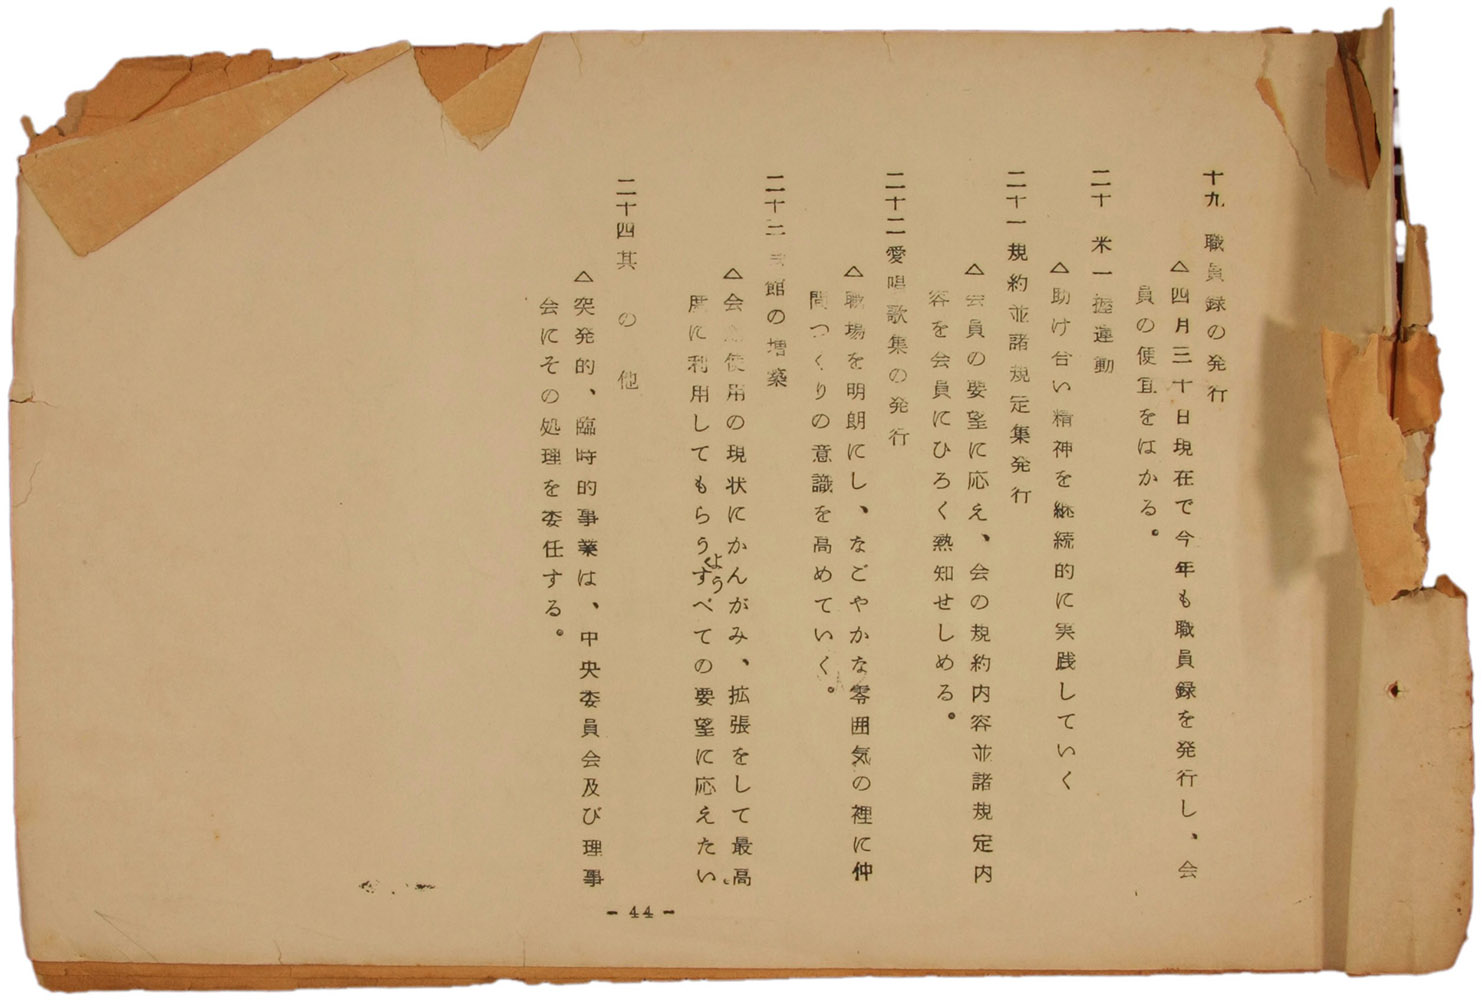 十九 職員録の発行
△四月三十日現在で今年も職員録を発行し、会
員の便宜をはかる。
二十 米一握運動
△助け合い精神を継続的に実践していく
二十一規約並諸規定集発行
△会員の要望に応え、会の規約内容並諸規定内
容を会員にひろく熟知せしめる。
二十二愛唱歌集の発行
△職場を明朗にし、なごやかな零囲気の裡に仲
間つくりの意識を高めていく。
二十三 館の増築
△会 使用の現状にかんがみ、拡張をして最高
度に利用してもらうようすべての要望に応えたい
二十四其の他
△突発的、臨時的事業は、中央委員会及び理事
会にその処理を委任する。
- 44 -